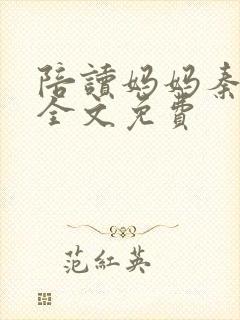 陪讀媽媽秦
全文免費
范紅英